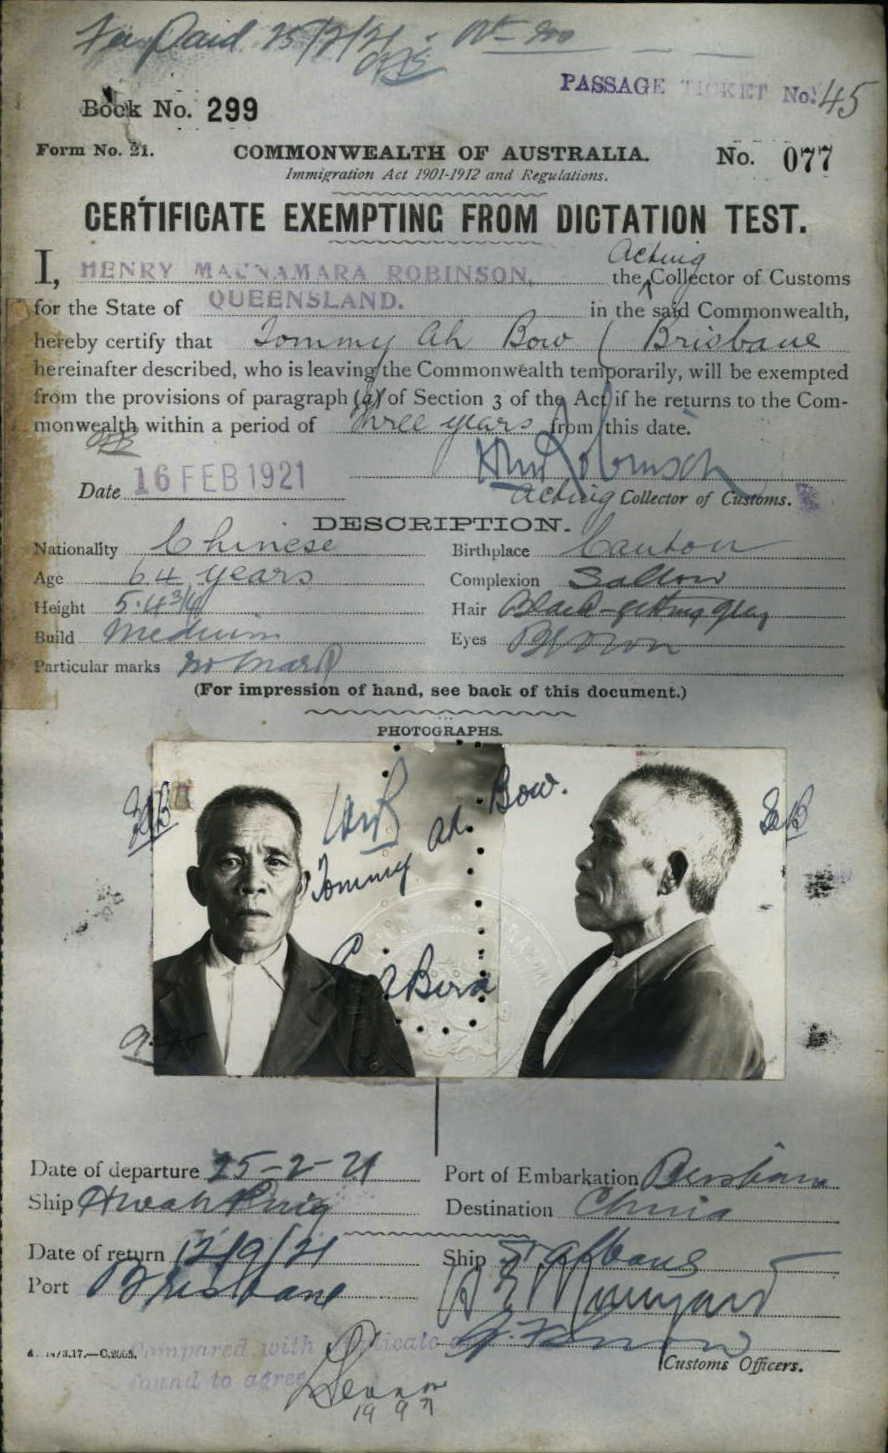 Fee Paid 25/2/21
PASSAGE TICKET No. 45
Book No. 299
Form No. 21.
COMMONWEALTH OF AUSTRALIA.
No. 077
Immigration Act 1901-1912 and Regulations.
CERTIFICATE EXEMPTING FROM DICTATION TEST.
Acting
I, HENRY MACNAMARA ROBINSON, the Collector of Customs
for the State of QUEENSLAND. in the said Commonwealth,
hereby certify that Tommy Ah Bow (Brisbane
hereinafter described, who is leaving the Commonwealth temporarily, will be exempted
from the provisions of paragraph (a) of Section 3 of the Act if he returns to the Com-
monwealth within a period of three years from this date.
HMRobinson
Date 16 FEB 1921
Acting Collector of Customs.
DESCRIPTION.
Nationality Chinese
Birthplace Canton
Age 64 years
Complexion Sallow
Height 5.4 3/4
Hair Black-getting grey
Build Medium
Eyes Brown
Particular marks no mark
(For impression of hand, see back of this document.)
PHOTOGRAPHS.
Tommy Ah Bow.
Date of departure 25-2-21
Port of Embarkation Brisbane
Ship Hwah Ping
Destination China
Date of return 12/9/21
Ship St Albans
Port Brisbane
Compared with duplicate
found to agree
Customs Officers.